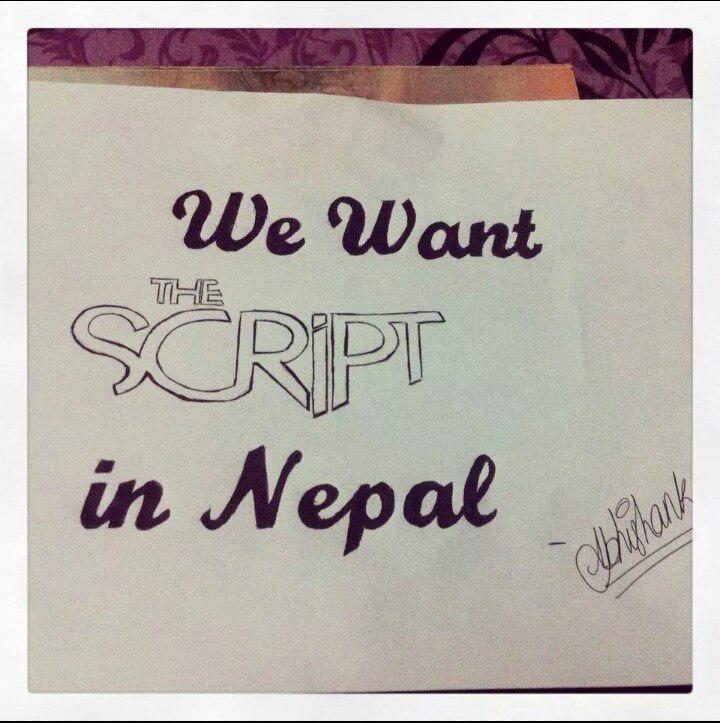 We Want
THE
SCRiPT
in Nepal
- Abhishank